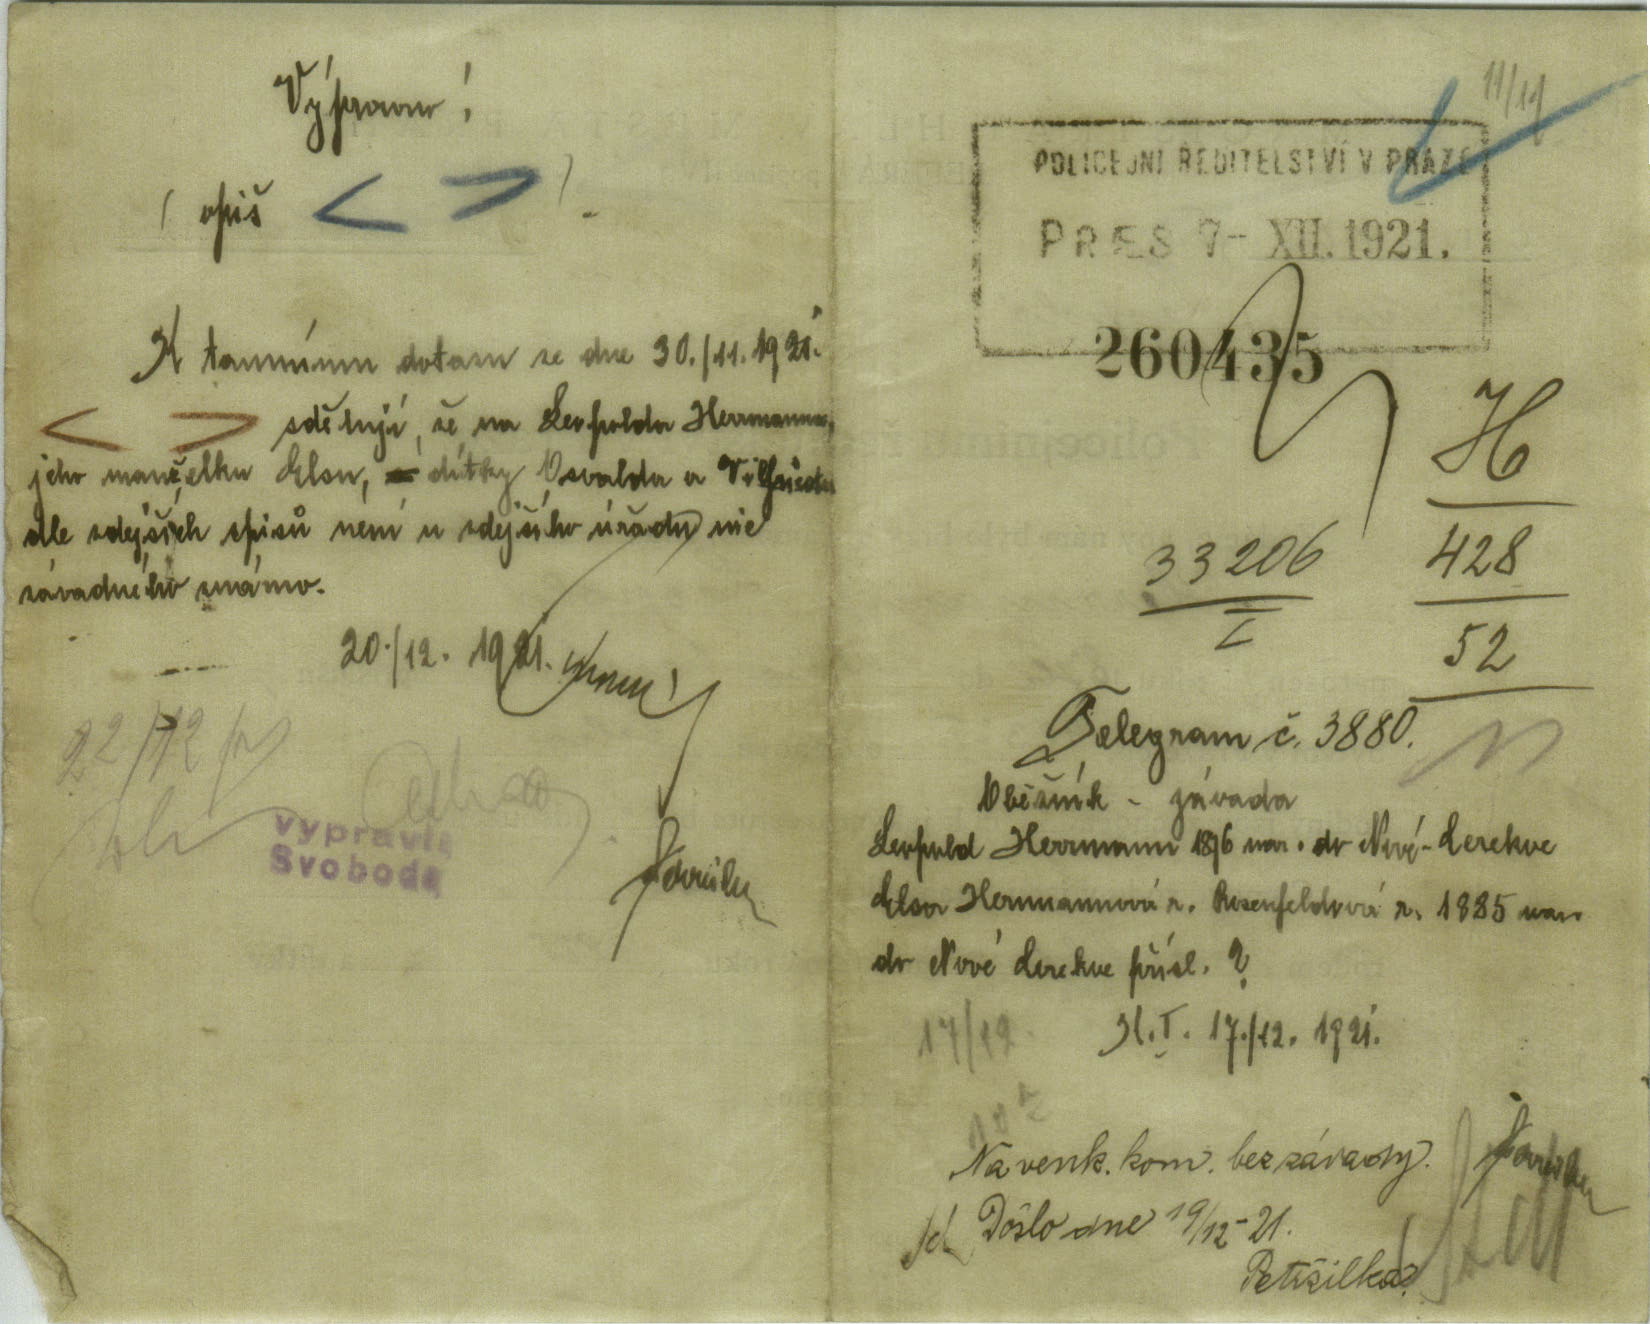 Výpravno!
( opiš < > ).
K tamnímu dotazu ze dne 30./11. 1921.
< > sděluji, že na Leopolda Herrmanna,
jeho manželku Elsu, dítky Osvalda a Vilfrieda
dle zdejších spisů není u zdejšího úřadu nic
závadného známo.
20./12. 1921.
22/12
vypravil
Svoboda
11/11
POLICEJNÍ ŘEDITELSTVÍ V PRAZE
PRÆS 7- XII. 1921.
260435
H
428
52
33206
I
Telegram č. 3880.
Oběžník - závada
Leopold Herrmann 1876 nar. do Nové-Cerekve
Elsa Herrmannová r. Rosenfeldová r. 1885 nar.
do Nové Cerekve přísl. ?
H.I. 17./12. 1921.
17/12
Na venk. kom. bez závady.
Došlo dne 19/12-21.
Petržilka